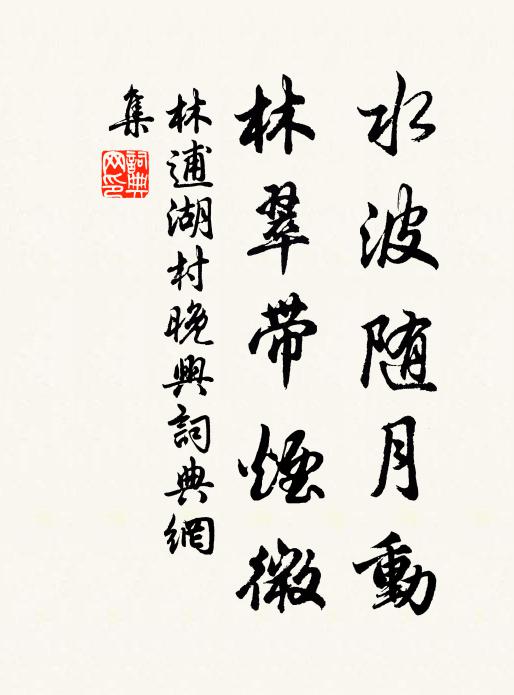 水波随月動
林翠带煙微
林逋湖村晚興詞典網
集
詞典
网印